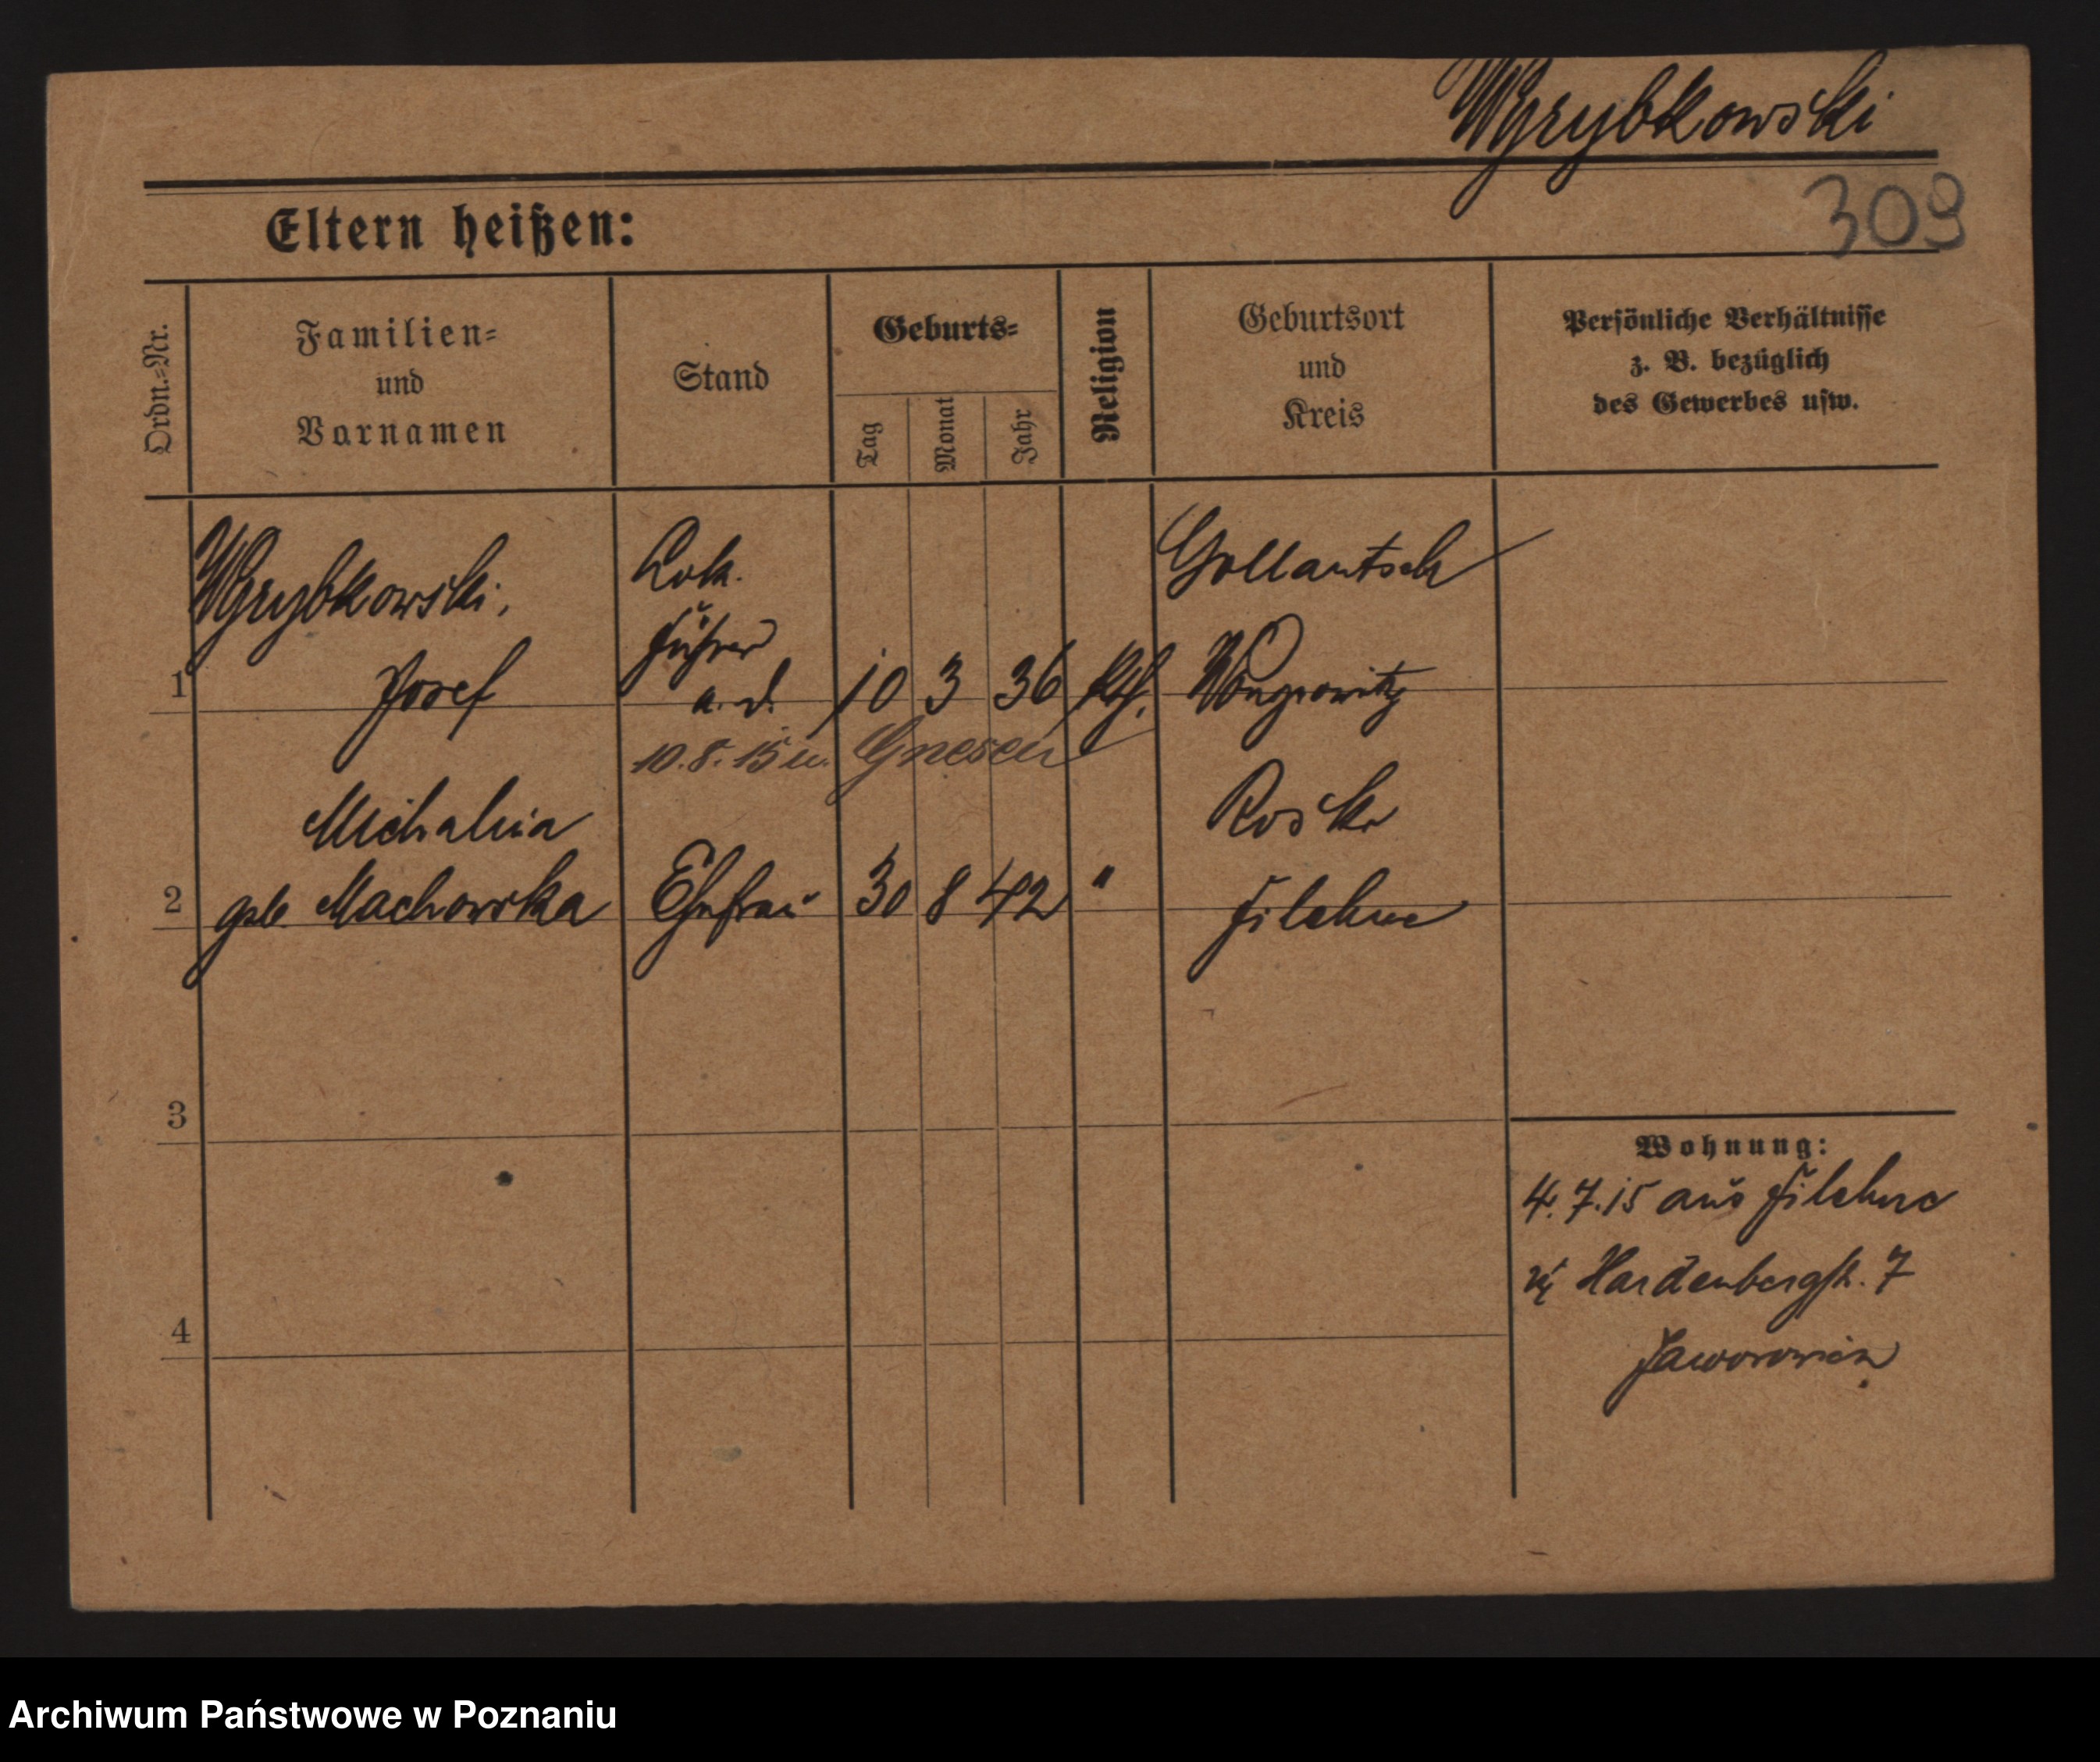 Wyrybkowski
309
Eltern heißen:
Ordn.=Nr.
Familien=
und
Vornamen
Stand
Geburts=
Tag
Monat
Jahr
Religion
Geburtsort
und
Kreis
Persönliche Verhältnisse
z. B. bezüglich
des Gewerbes usw.
Wyrybkowski,
Josef
Lok.
Führer
a. D.
1
10 3 36 kth.
Gollantsch
Wongrowitz
10.8.15 n. Gnesen
Michalina
geb. Machowska
2
Ehefrau
30 8 42 "
Rosko
Filehne
3
4
Wohnung:
4.7.15 aus Filehne
Hardenbergstr. 7
Archiwum Państwowe w Poznaniu